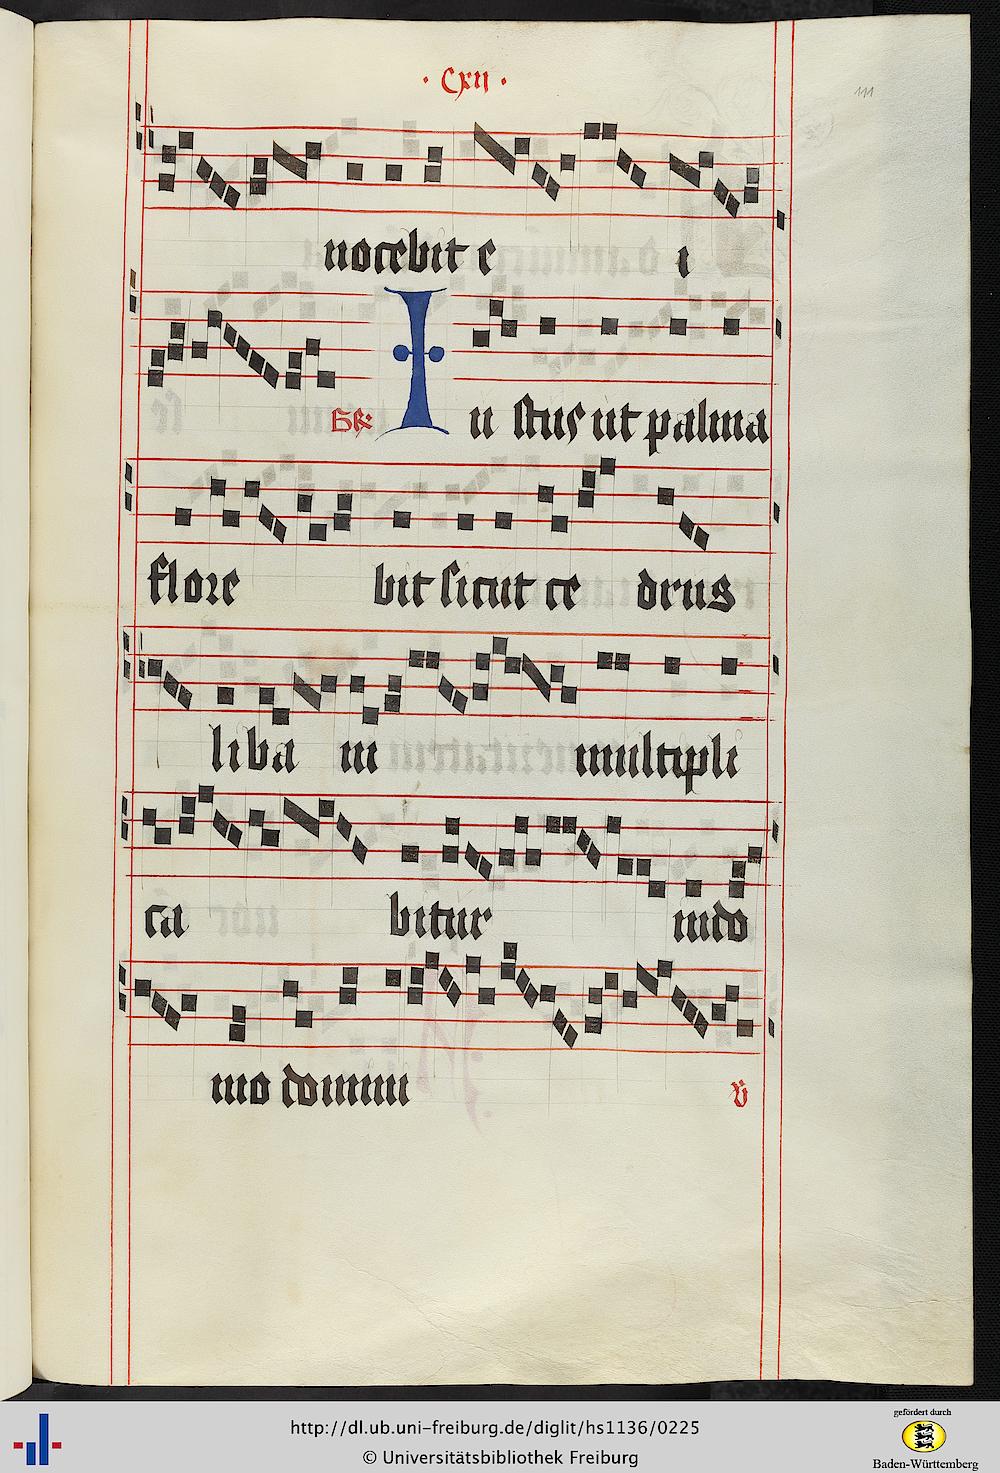 · Cxii ·
111
nocebit e i
Gr I u stus ut palma
flore bit sicut ce drus
liba ni multipli
ca bitur indo
mo domini v
http://dl.ub.uni-freiburg.de/diglit/hs1136/0225
© Universitätsbibliothek Freiburg
gefördert durch
Baden-Württemberg